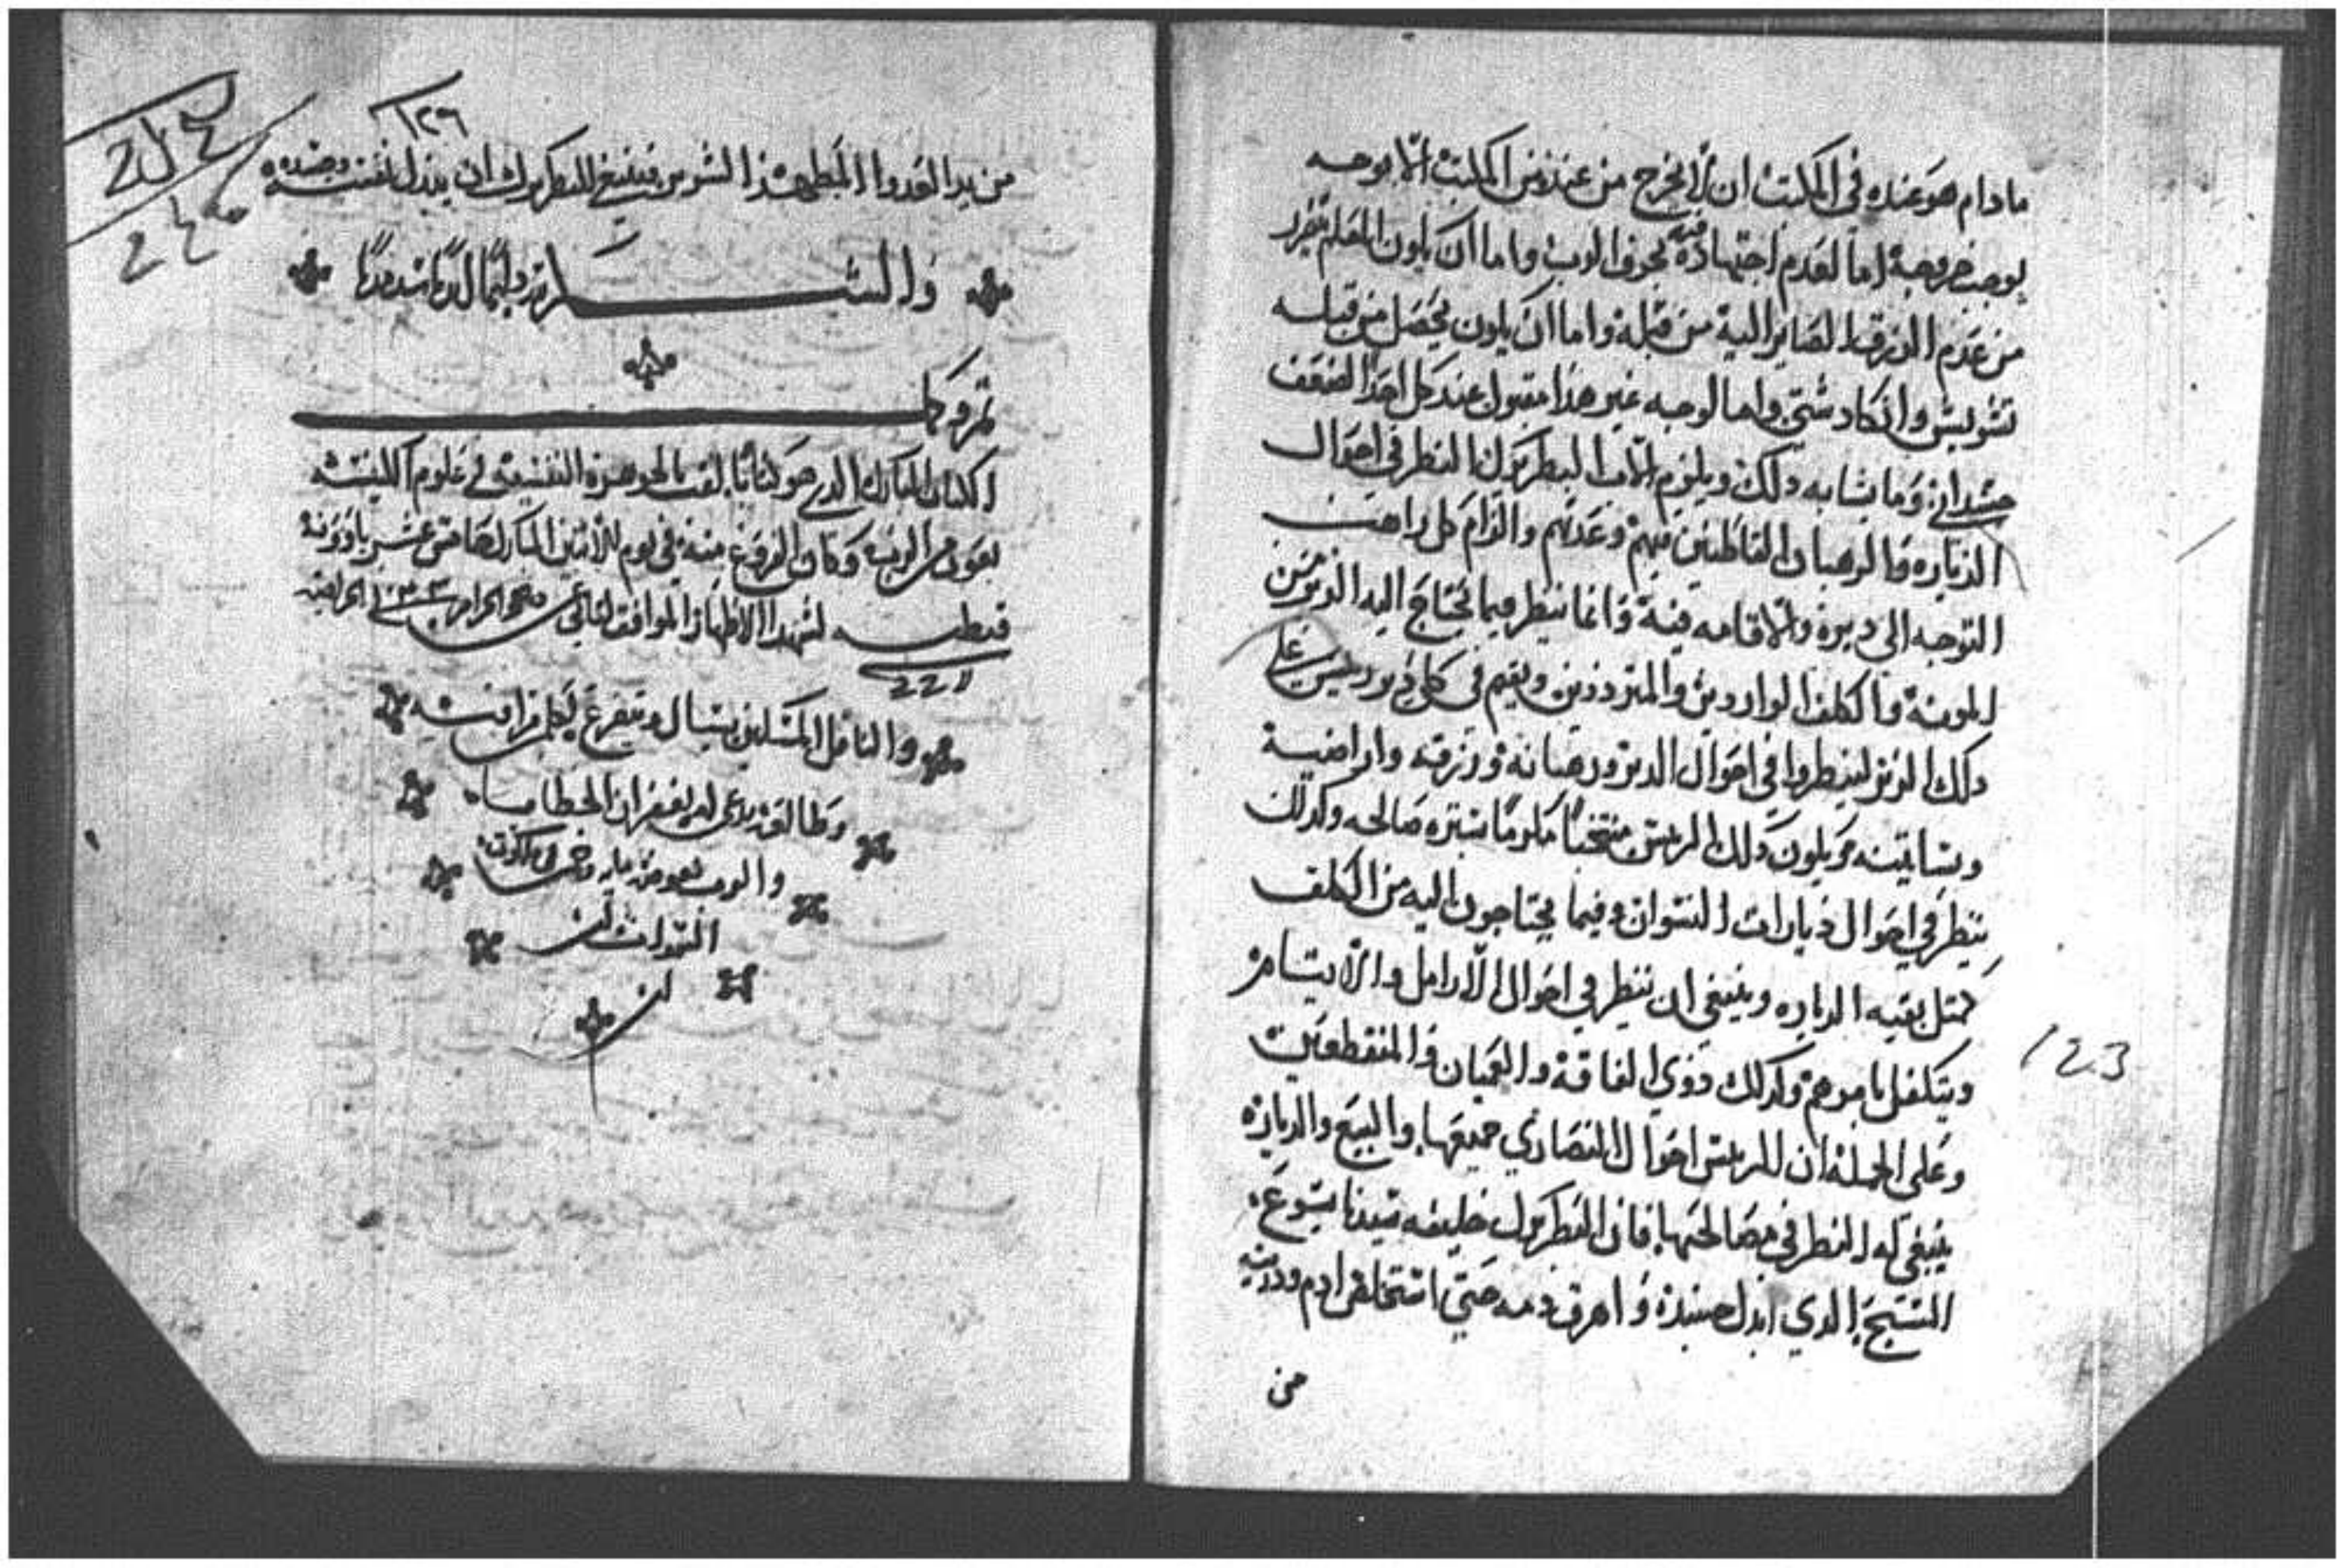 مادام هو عنده في المكتب ان لا يخرج من عنده من المكتب الا بوجه
يوجب خروجه اما لعدم اجتهاده فيه بحروف الادب واما ان يكون المعلم تضرر
من عدم الرزق الصاير اليه من قبله واما ان يكون يحصل من قبله
تشويش وانكاد شتي واما لوجه غير هذا مقبول عند كل احد لضعف
جسداني وما يشابه دلك ويلزم الاب البطريرك النظر في احوال
الدياره والرهبان القاطنين فيهم وعدتهم والزام كل راهب
التوجه الى ديره والاقامه فيه وانما ينظر فيما تحتاج اليه الديره من
المونه والكلف الواردين والمترددين ويقيم في كل دير ريس علي
دلك الدير لينظروا في احوال الدير ورهبانه ورزقه واراضيه
وبساتينه ويكون دلك الريس منتخبًا مكرمًا بسيره صالحه وكدلك
ينظر في احوال ديارات النسوان وفيما يحتاجون اليه من الكلف
كمتل بقيه الدياره وينبغي ان ينظر في احوال الارامل والايتام
ويتكفل بامورهم وكدلك ذوي الفاقه والعميان والمنقطعين
وعلي الجمله ان للريس احوال النصاري جميعها والبيع والدياره
ينبغي له النظر في مصالحها فان البطريرك خليفه سيدنا يسوع
المسيح الدي ابدل جسده واهرق دمه حتي استخلص ادم ودريته
من
١٢٣
١٢٦
من يد العدوا المبطي هذا الشرير فينبغي للبطريرك ان يبدل نفسه وجسده
والسلام دايمًا ابدًا سرمدًا
تم وكمل
الكتاب المبارك الدي هو كتابًا يلقب بالجوهرة النفيسه في علوم الكنيسه
بعون من الرب وكان الفروغ منه في يوم الاثنين المبارك خامس عشر باوونه
قبطيه للشهدا الاطهار الموافق
والناقل المسكين يسال ويتضرع لكل من
يدعي له بغفران الخطايا
والرب يعوض
السموات امين
امين